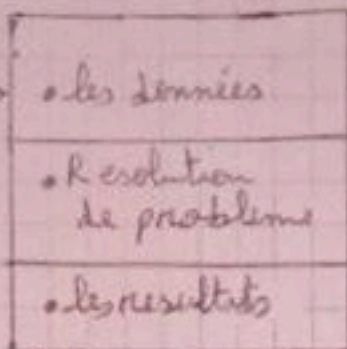 • les données
• Resolution
de probleme
• les resultats